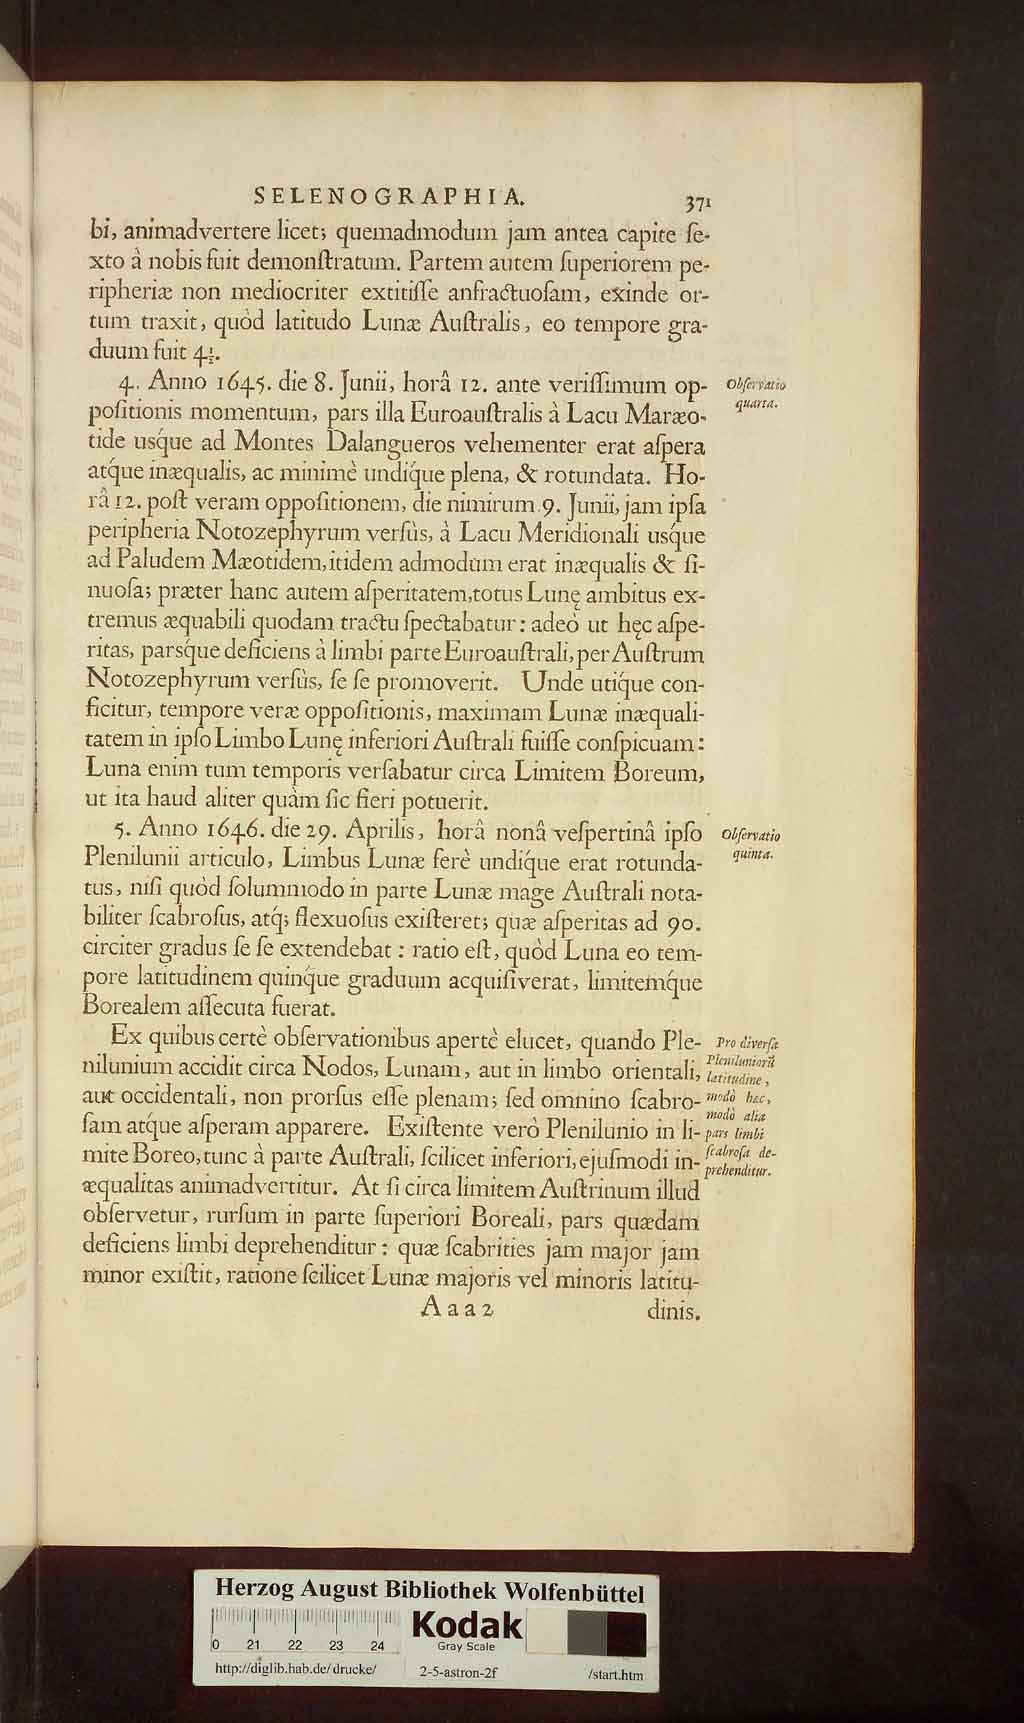 SELENOGRAPHIA. 371
bi, animadvertere licet; quemadmodum jam antea capite ſe-
xto à nobis fuit demonſtratum. Partem autem ſuperiorem pe-
ripheriæ non mediocriter extitiſſe anfractuoſam, exinde or-
tum traxit, quòd latitudo Lunæ Auſtralis, eo tempore gra-
duum fuit 4½.
4. Anno 1645. die 8. Junii, horâ 12. ante veriſſimum op-
poſitionis momentum, pars illa Euroauſtralis à Lacu Maræo-
tide usq́ue ad Montes Dalangueros vehementer erat aſpera
atq́ue inæqualis, ac minimè undiq́ue plena, & rotundata. Ho-
râ 12. poſt veram oppoſitionem, die nimirum 9. Junii, jam ipſa
peripheria Notozephyrum verſùs, à Lacu Meridionali usq́ue
ad Paludem Mæotidem, itidem admodùm erat inæqualis & ſi-
nuoſa; præter hanc autem aſperitatem, totus Lunę ambitus ex-
tremus æquabili quodam tractu ſpectabatur: adeò ut hęc aſpe-
ritas, parsq́ue deficiens à limbi parte Euroauſtrali, per Auſtrum
Notozephyrum verſùs, ſe ſe promoverit. Unde utiq́ue con-
ficitur, tempore veræ oppoſitionis, maximam Lunæ inæquali-
tatem in ipſo Limbo Lunę inferiori Auſtrali fuiſſe conſpicuam:
Luna enim tum temporis verſabatur circa Limitem Boreum,
ut ita haud aliter quàm ſic fieri potuerit.
Obſervatio
quarta.
5. Anno 1646. die 29. Aprilis, horâ nonâ veſpertinâ ipſo
Plenilunii articulo, Limbus Lunæ ferè undiq́ue erat rotunda-
tus, niſi quòd ſolummodo in parte Lunæ mage Auſtrali nota-
biliter ſcabroſus, atq́; flexuoſus exiſteret; quæ aſperitas ad 90.
circiter gradus ſe ſe extendebat: ratio eſt, quòd Luna eo tem-
pore latitudinem quinq́ue graduum acquiſiverat, limitemq́ue
Borealem aſſecuta fuerat.
Obſervatio
quinta.
Ex quibus certè obſervationibus apertè elucet, quando Ple-
nilunium accidit circa Nodos, Lunam, aut in limbo orientali,
aut occidentali, non prorſus eſſe plenam; ſed omnino ſcabro-
ſam atq́ue aſperam apparere. Exiſtente verò Plenilunio in li-
mite Boreo, tunc à parte Auſtrali, ſcilicet inferiori, ejuſmodi in-
æqualitas animadvertitur. At ſi circa limitem Auſtrinum illud
obſervetur, rurſum in parte ſuperiori Boreali, pars quædam
deficiens limbi deprehenditur: quæ ſcabrities jam major jam
minor exiſtit, ratione ſcilicet Lunæ majoris vel minoris latitu-
Pro diverſa
Pleniluniorũ
latitudine,
modò hæc,
modò alia
pars limbi
ſcabroſa de-
prehenditur.
Aaa2 dinis.
Herzog August Bibliothek Wolfenbüttel
Kodak
Gray Scale
0 21 22 23 24
http://diglib.hab.de/drucke/ 2-5-astron-2f /start.htm